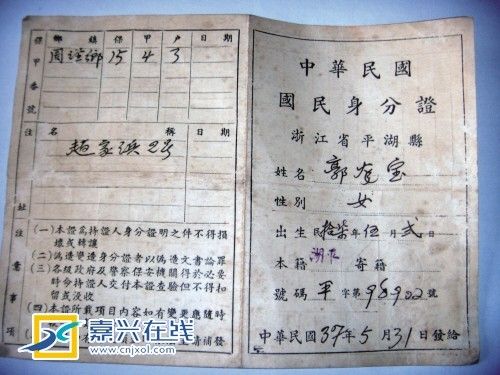 保甲番號
鄉鎮 保 甲 戶 日期
鄉 15 4 3
註
名稱 日期
趙家浜
址
注意事項
(一)本證爲持證人身分證明之件不得損
壞或轉讓
(二)偽造變造身分證者以偽造文書論罪
(三)各級政府及警察保安機關得於必要
時令持證人交付本證查驗但不得扣
留或没收
(四)本證所載項目內容如有變更應隨時
請補發
中華民國
國民身分證
浙江省平湖縣
姓名 郭 宝
性別 女
出生民拾柒年伍月貳日
本籍 寄籍
號碼 平字第 號
中華民國37年5月31日發給
嘉兴在线
www.cnjxol.com